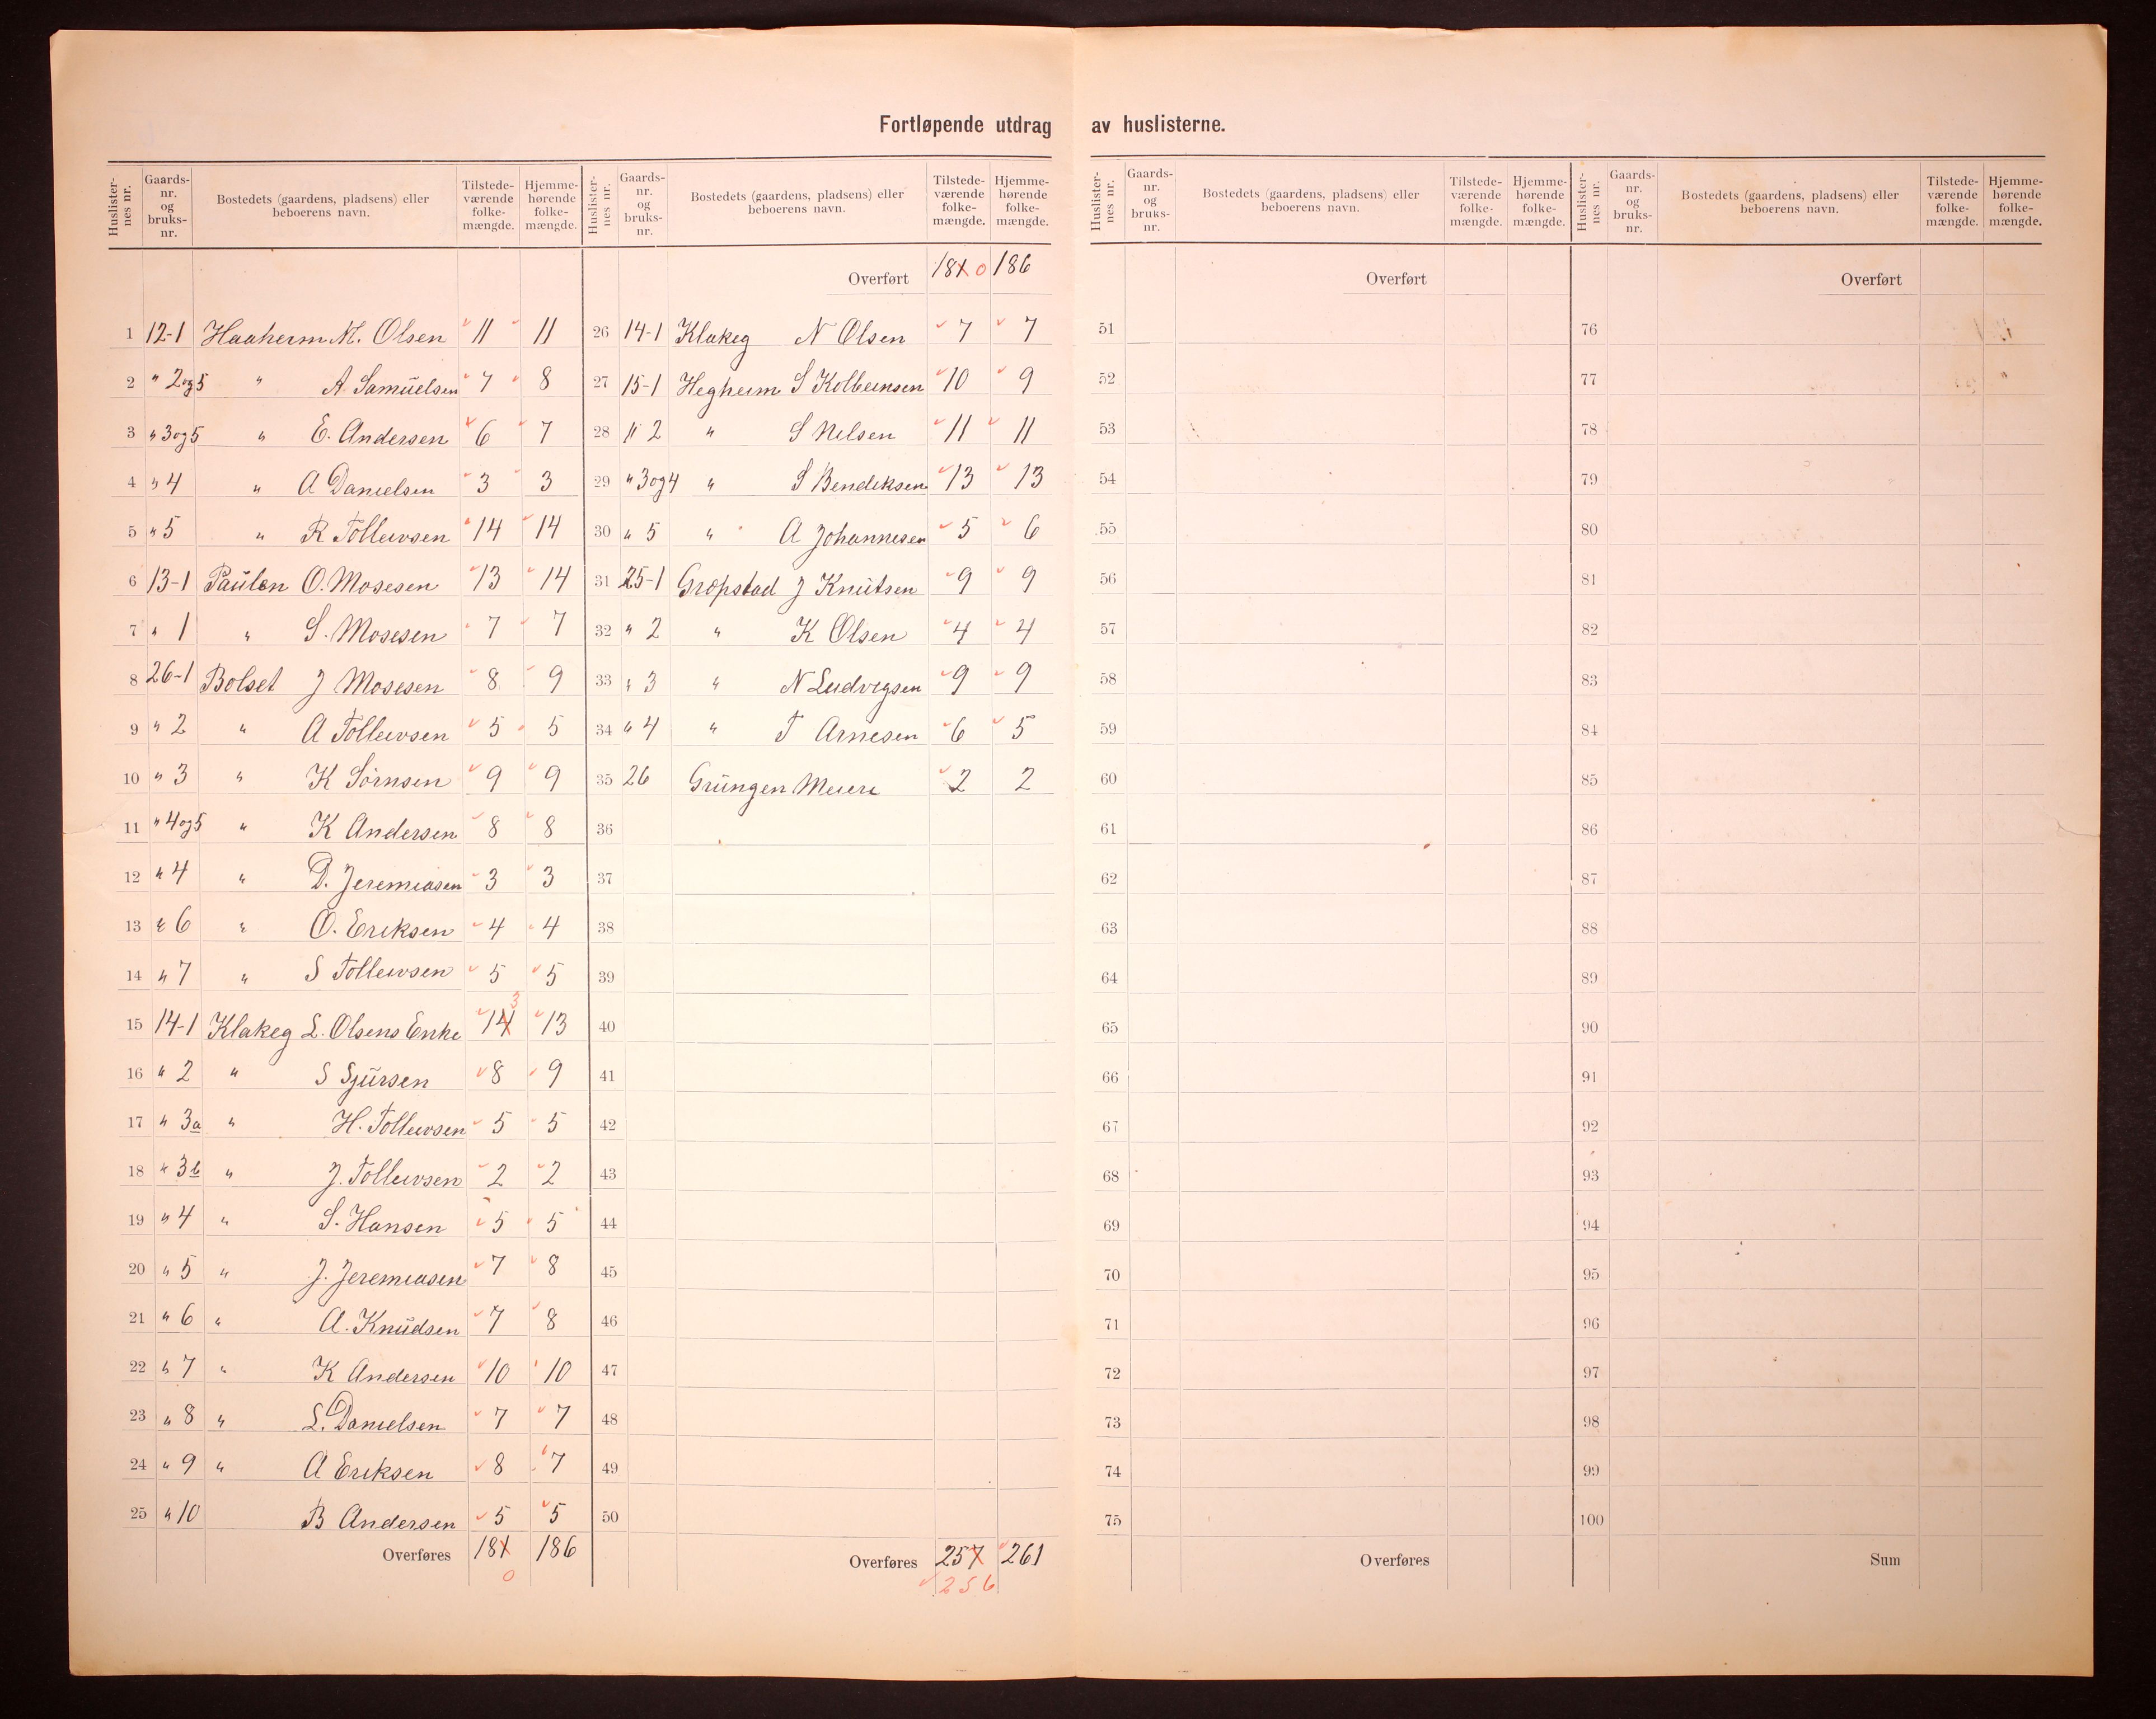 Fortløpende utdrag av huslisterne.
Huslisternes nr. Gaards-nr. og bruks-nr. Bostedets (gaardens, pladsens) eller beboerens navn. Tilstede-værende folke-mængde. Hjemme-hørende folke-mængde.
1 12-1 Haaheim M. Olsen 11 11
2 " 2og5 " A. Samuelsen 7 8
3 " 3og5 " E. Andersen 6 7
4 " 4 " A Danielsen 3 3
5 " 5 " R Tolleivsen 14 14
6 13-1 Paulen O. Mosesen 13 14
7 " 1 " S. Mosesen 7 7
8 26-1 Bolset J Mosesen 8 9
9 " 2 " A Tolleivsen 5 5
10 " 3 " K Sörnsen 9 9
11 " 4og5 " K Andersen 8 8
12 " 4 " D. Jeremiasen 3 3
13 " 6 " O. Eriksen 4 4
14 " 7 " S Tolleivsen 5 5
15 14-1 Klakeg L. Olsens Enke 14 3 13
16 " 2 " S Sjursen 8 9
17 " 3a " H. Tolleivsen 5 5
18 " 3b " J. Tolleivsen 2 2
19 " 4 " S. Hansen 5 5
20 " 5 " J. Jeremiasen 7 8
21 " 6 " A. Knudsen 7 8
22 " 7 " K Andersen 10 10
23 " 8 " L. Danielsen 7 7
24 " 9 " A Eriksen 8 7
25 " 10 B Andersen 5 5
Overføres 181 186
0
Huslisternes nr. Gaards-nr. og bruks-nr. Bostedets (gaardens, pladsens) eller beboerens navn. Tilstede-værende folke-mængde. Hjemme-hørende folke-mængde.
Overført 181 0 186
26 14-1 Klakeg N Olsen 7 7
27 15-1 Hegheim S Kolbeinsen 10 9
28 " 2 " S Nilsen 11 11
29 " 3og4 " S Bendiksen 13 13
30 " 5 " A Johannesen 5 6
31 25-1 Grøpstad J Knutsen 9 9
32 " 2 " K Olsen 4 4
33 " 3 " N Ludvigsen 9 9
34 " 4 " T Arnesen 6 5
35 26 Grungen Meieri 2 2
36
37
38
39
40
41
42
43
44
45
46
47
48
49
50
Overføres 257 261
256
Huslisternes nr. Gaards-nr. og bruks-nr. Bostedets (gaardens, pladsens) eller beboerens navn. Tilstede-værende folke-mængde. Hjemme-hørende folke-mængde.
Overført
51
52
53
54
55
56
57
58
59
60
61
62
63
64
65
66
67
68
69
70
71
72
73
74
75
Overføres
Huslisternes nr. Gaards-nr. og bruks-nr. Bostedets (gaardens, pladsens) eller beboerens navn. Tilstede-værende folke-mængde. Hjemme-hørende folke-mængde.
Overført
76
77
78
79
80
81
82
83
84
85
86
87
88
89
90
91
92
93
94
95
96
97
98
99
100
Sum